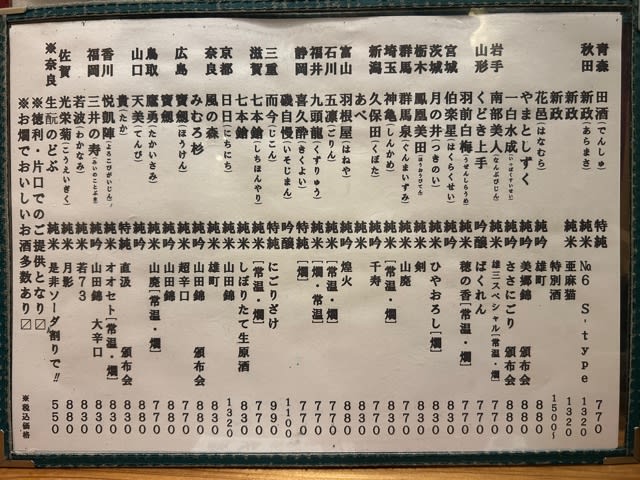 青森 田酒(でんしゅ) 特純 770
秋田 新政(あらまさ) 純米 №6 S-type 1320
新政 純米 亜麻猫 1320
新政 特別酒 1500~
花邑(はなむら) 純吟 雄町 880
やまとしずく 純吟 美郷錦 頒布会 880
一白水成(いっぱくすいせい) 純吟 ささにごり 頒布会 880
岩手 南部美人(なんぶびじん) 純米 雄三スペシャル[常温・燗] 770
山形 くどき上手 吟醸 ばくれん 770
羽前白梅(うぜんしらうめ) 純米 穂の香[常温・燗] 770
宮城 伯楽星(はくらくせい) 純吟
茨城 月の井(つきのい) 純米 ひやおろし[燗] 770
栃木 鳳凰美田(ほうおうびでん) 純米 剣
群馬 群馬泉(ぐんまいずみ) 純米 山廃 770
埼玉 神亀(しんかめ) 純米 [常温・燗]
新潟 久保田(くぼた) 純米 千寿 770
あべ 純米
富山 羽根屋(はねや) 純吟 煌火
石川 五凛(ごりん) 純米 [常温・燗] 770
福井 九頭龍(くずりゅう) 純米 [常温・燗] 770
静岡 喜久酔(きくよい) 特純 [燗] 770
磯自慢(いそじまん) 吟醸 1100
三重 而今(じこん) 特純 にごりざけ 990
滋賀 七本鎗(しちほんやり) 純米 [常温・燗] 770
七本鎗 純米 しぼりたて生原酒 830
京都 日日(にちにち) 純米 山田錦 1320
奈良 風の森 純米 雄町 830
みむろ杉 純吟 山田錦 頒布会 880
広島 寶劔(ほうけん) 純米 超辛口 770
寶劔 純吟 山田錦
鳥取 鷹勇(たかいさみ) 純米 山廃[常温・燗] 770
山口 天美(てんび) 純吟 880
貴(たか) 特純 直汲 頒布会 830
香川 悦凱陣(よろこびがいじん) 純米 オオセト[常温・燗] 830
福岡 三井の寿(みいのことぶき) 純吟 山田錦 大辛口 830
若波(わかなみ) 純米 若73 830
佐賀 光栄菊(こうえいぎく) 純米 月影 580
※奈良 生酛のどぶ 純米 是非ソーダ割りで!! 550
※徳利・片口でのご提供となり〼
※お燗でおいしいお酒多数あり〼
※税込価格